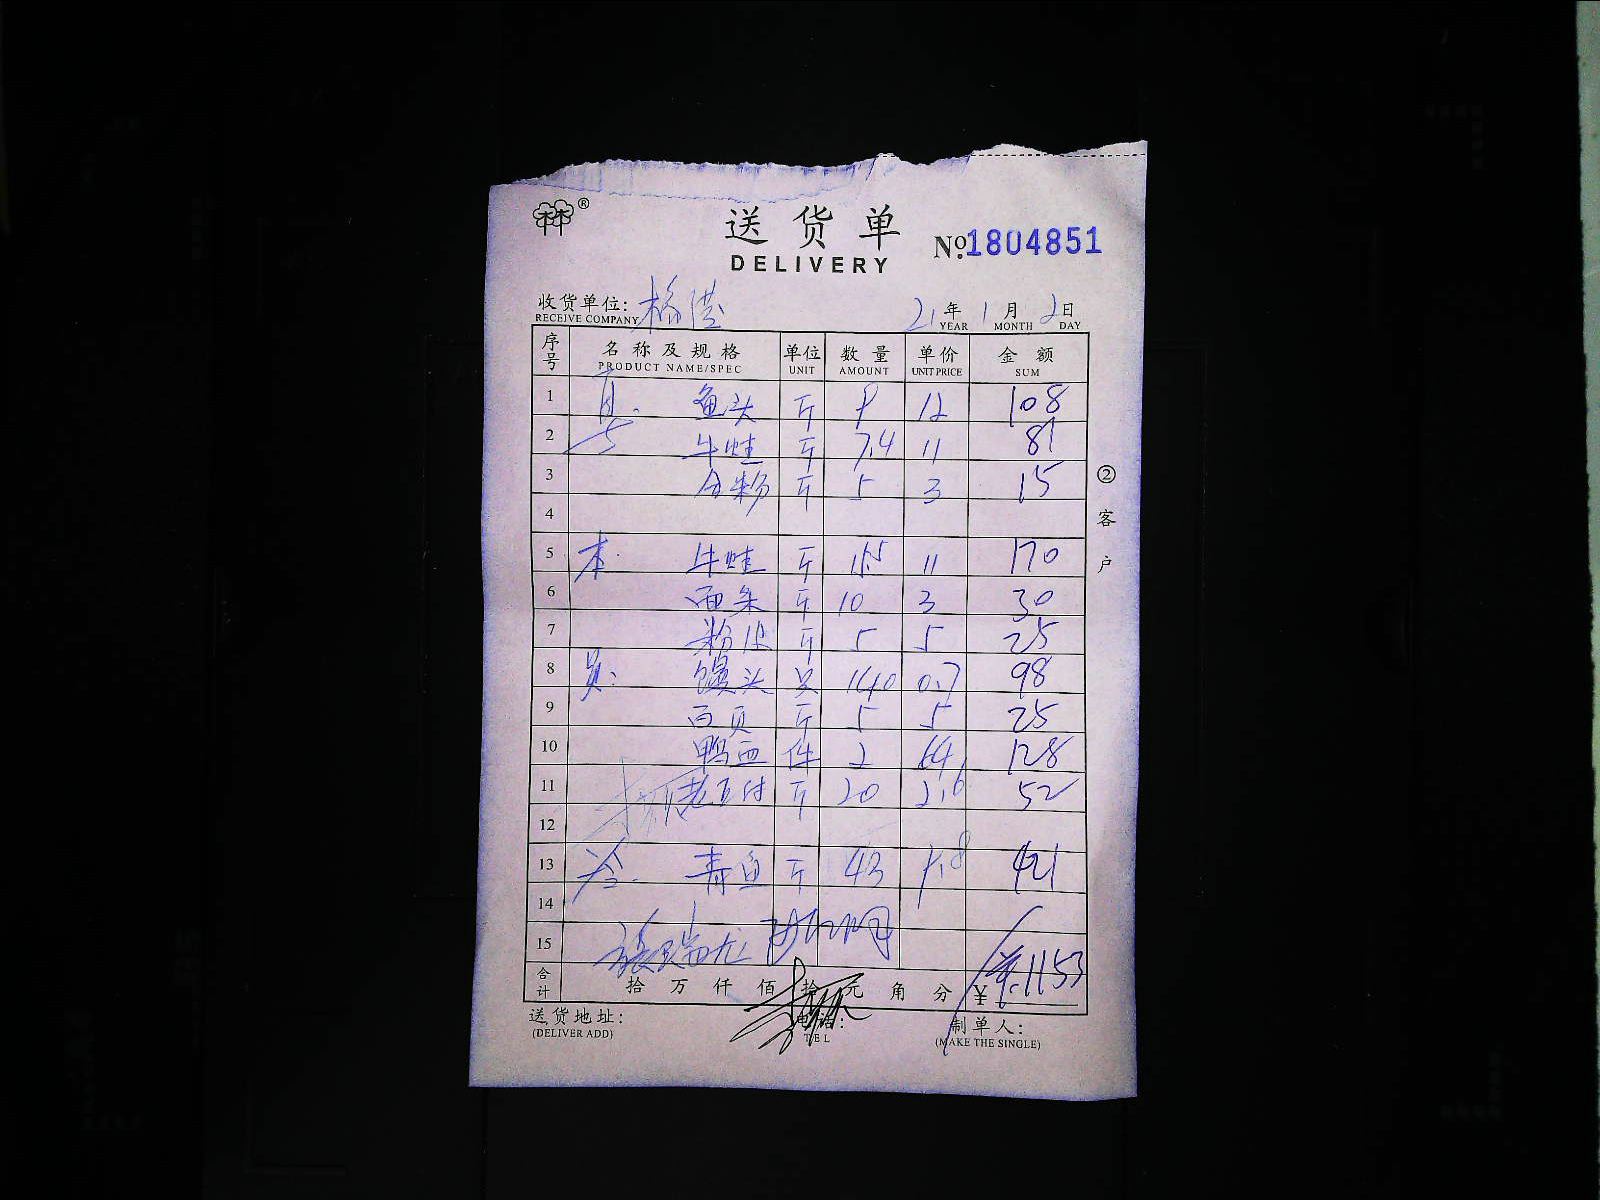 ®
送货单
DELIVERY
No.1804851
收货单位: 21年 1月 2日
RECEIVE COMPANY YEAR MONTH DAY
序号 名称及规格 单位 数量 单价 金额
PRODUCT NAME/SPEC UNIT AMOUNT UNIT PRICE SUM
1 鱼头 斤 9 12 108
2 牛蛙 斤 7.4 11 81
3 斤 5 3 15
4
5 本 牛蛙 斤 15.5 11 170
6 面条 斤 10 3 30
7 粉皮 斤 5 5 25
8 馒头 只 140 0.7 98
9 百页 斤 5 5 25
10 鸭血 件 2 64 128
11 斤 20 2.6 52
12
13 冷. 青鱼 斤 43 9.8 421
14
15
合计 拾 万 仟 佰 拾 元 角 分 ¥ 1153
送货地址: 电话: 制单人:
(DELIVER ADD) TEL (MAKE THE SINGLE)
② 客户